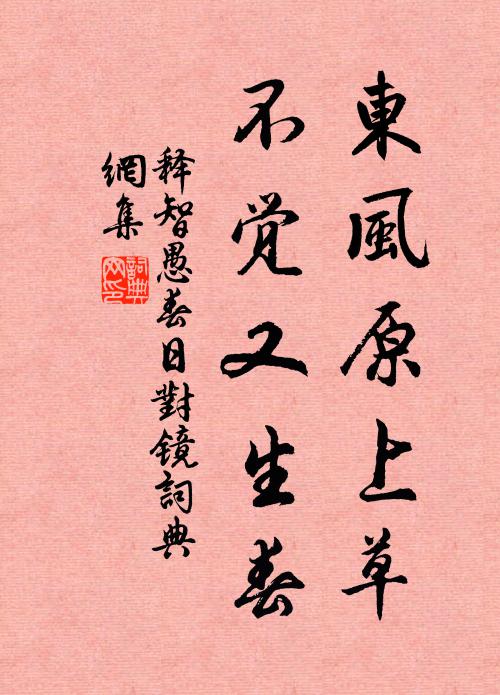 東風原上草
不覚又生春
释智愚春日對镜詞典
網集
詞典网印